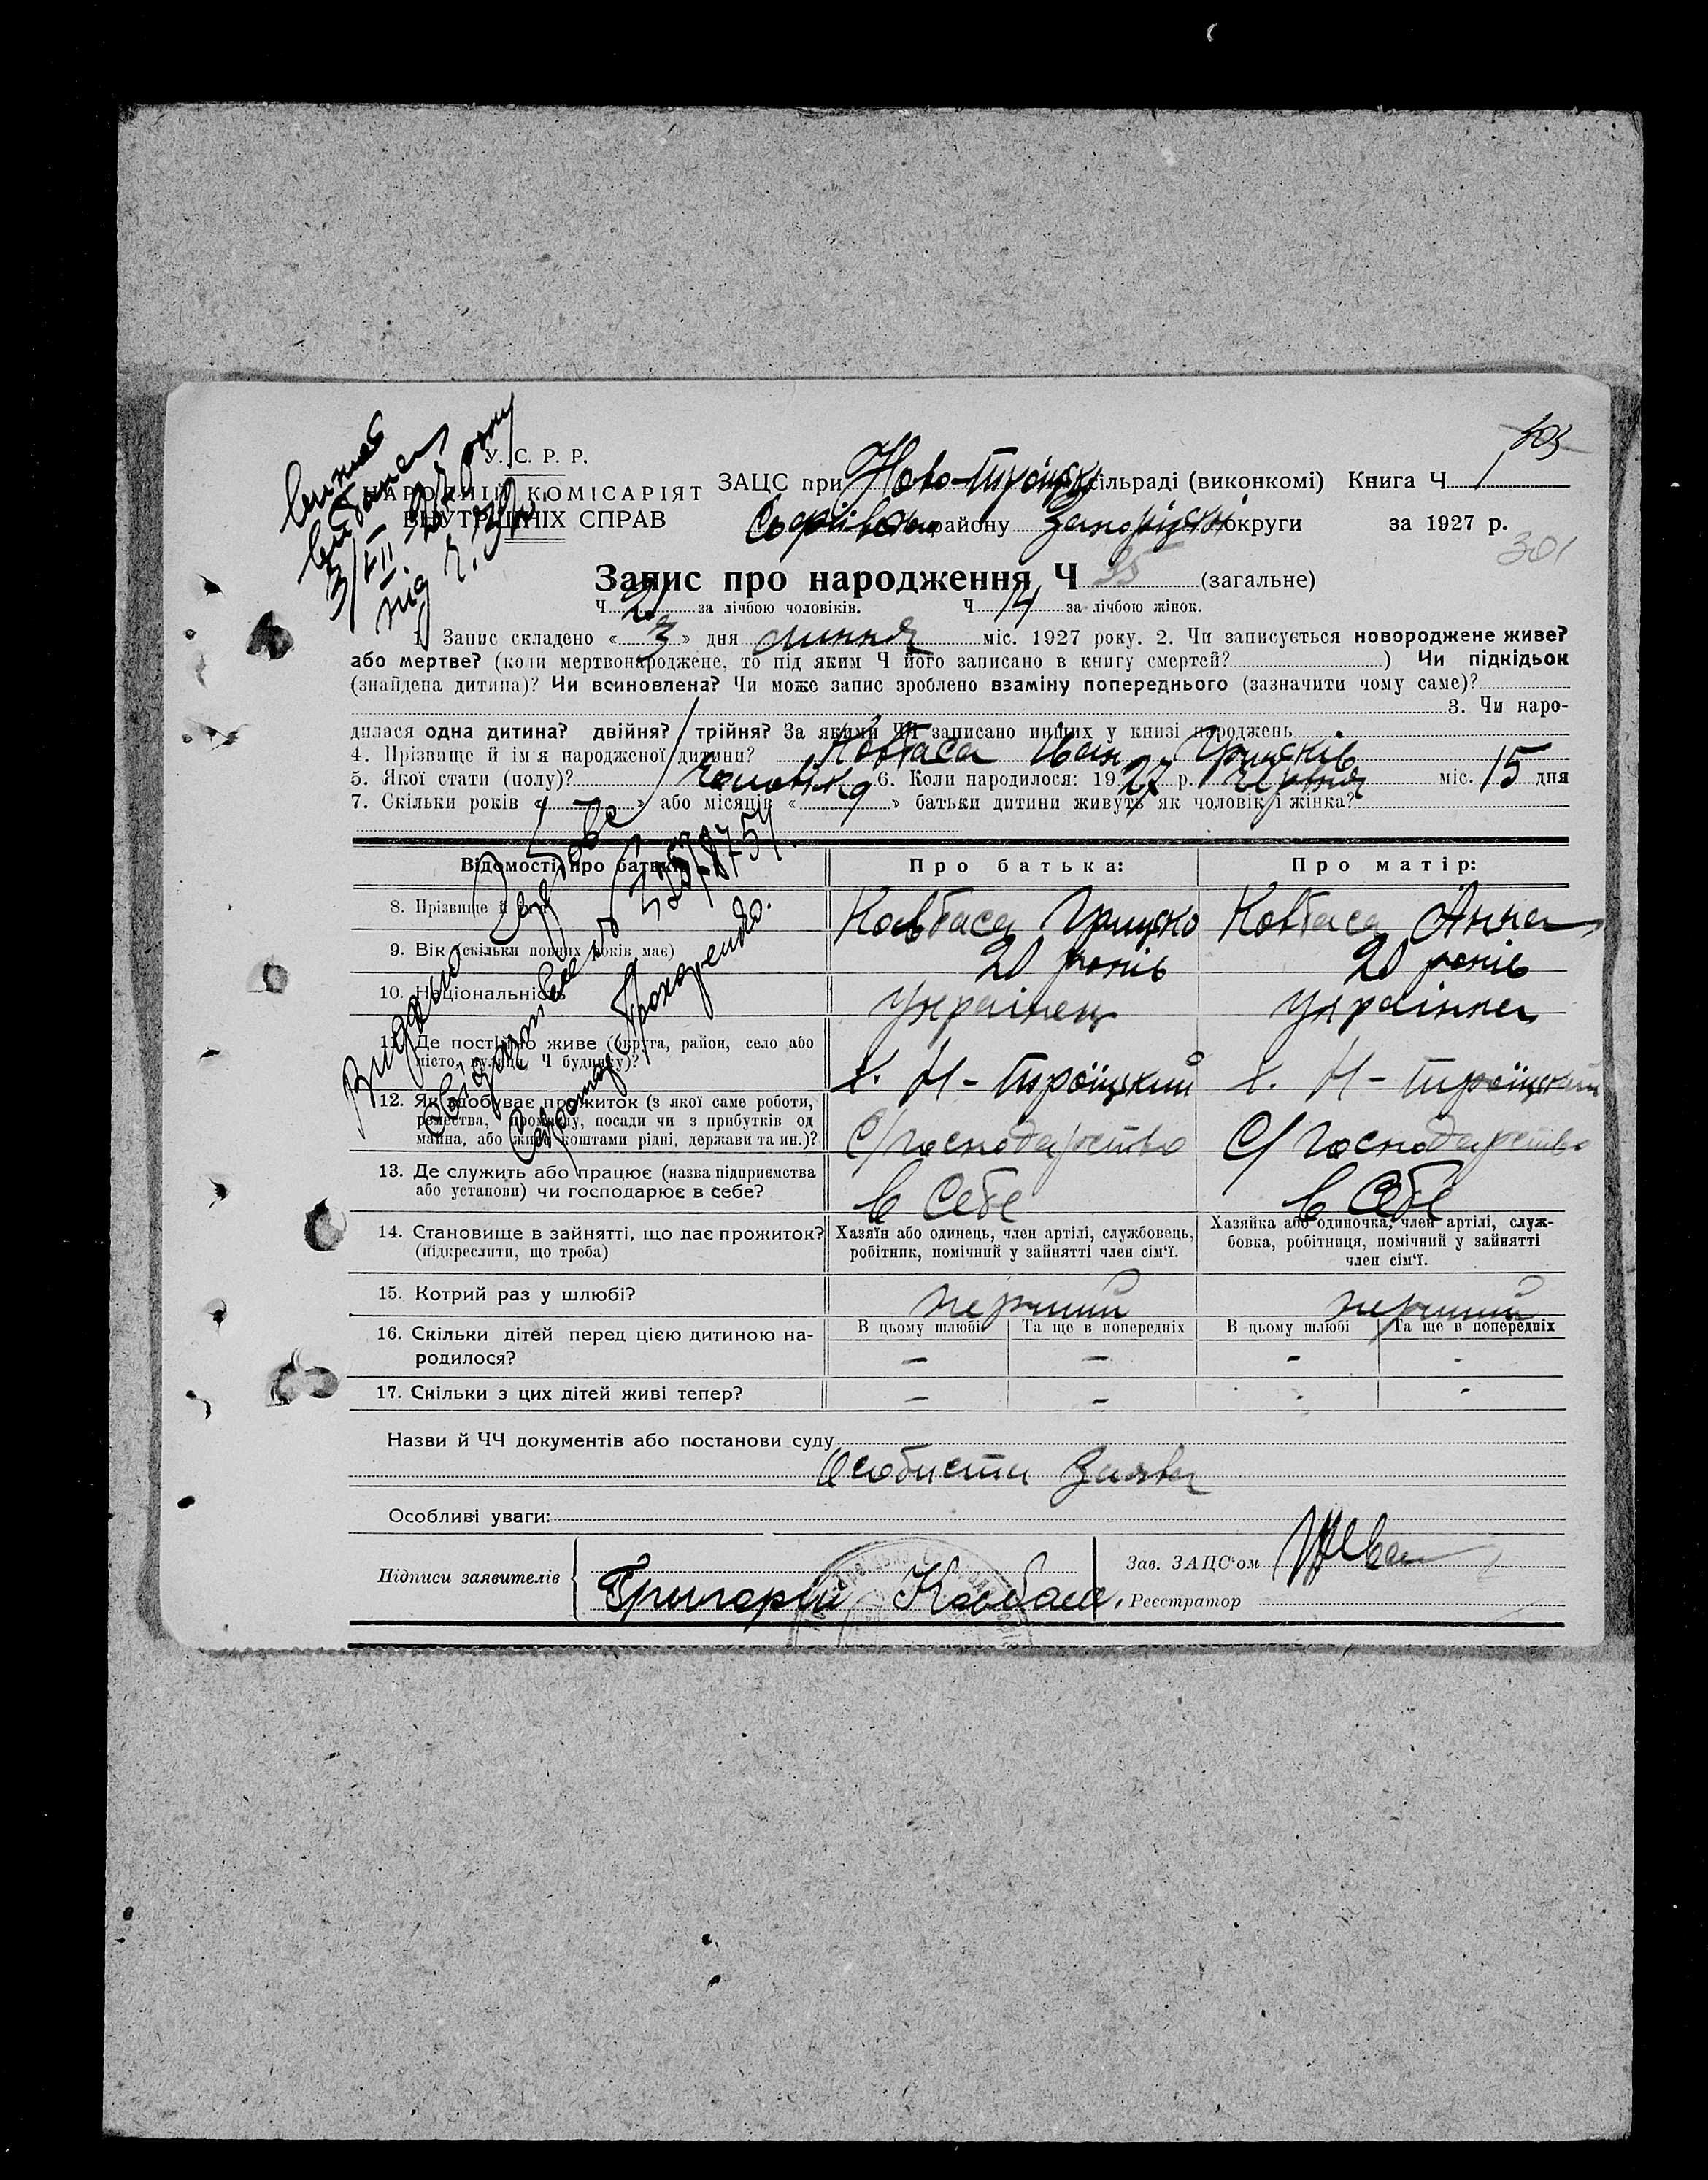 У. С. Р. Р.
НАРОДНІЙ КОМІСАРІЯТ
ВНУТРІШНІХ СПРАВ
виписа
3/VII 927 року
під ч.
ЗАЦС при Ново-Троїцькі сільраді (виконкомі) Книга Ч 1
Софіївськ району Запоріжжі округи за 1927 р.
301
Запис про народження Ч 35 (загальне)
Ч 21 за лічбою чоловіків. Ч 14 за лічбою жінок.
1. Запис складено « 3 » дня липня міс. 1927 року. 2. Чи записується новороджене живе?
або мертве? (коли мертвонароджене, то під яким Ч його записано в книгу смертей? ) Чи підкідьок
(знайдена дитина)? Чи всиновлена? Чи може запис зроблено взаміну попереднього (зазначити чому саме)?
3. Чи наро-
дилася одна дитина? двійня? трійня? За якими ЧЧ записано инших у книзі народжень
4. Прізвище й ім'я народженої дитини? Ковбаса Іван Грицків
5. Якої стати (полу)? чоловіча 6. Коли народилося: 1927 р. червня міс. 15 дня
7. Скільки років « » або місяців « » батьки дитини живуть як чоловік і жінка?
Відомості про батьків Про батька: Про матір:
8. Прізвище й ім'я Ковбаса Грицько Ковбаса Анна
9. Вік (скільки повних років має) 20 років 20 років
10. Національність Українец Українка
11. Де постійно живе (округа, район, село або
місто, вулиця, Ч будинку)? х. Н-Троїцький х. Н-Троїцький
12. Як здобуває прожиток (з якої саме роботи,
ремества, промислу, посади чи з прибутків од
майна, або живе коштами рідні, держави та ин.)? С/господарство С/господарство
13. Де служить або працює (назва підприємства
або установи) чи господарює в себе? в Себе в Себе
14. Становище в зайнятті, що дає прожиток?
(підкреслити, що треба)
Хазяїн або одинець, член артілі, службовець,
робітник, помічний у зайнятті член сім'ї.
Хазяйка або одиночка, член артілі, служ-
бовка, робітниця, помічний у зайнятті
член сім'ї.
15. Котрий раз у шлюбі? перший перший
16. Скільки дітей перед цією дитиною на-
родилося?
В цьому шлюбі Та ще в попередніх В цьому шлюбі Та ще в попередніх
– – – -
17. Скільки з цих дітей живі тепер? – – - -
Назви й ЧЧ документів або постанови суду
Особиста Заява
Особливі уваги:
Підписи заявителів Григорій Ковбаса.
Зав. ЗАЦС'ом
Реєстратор
Видано
Свідоцтво